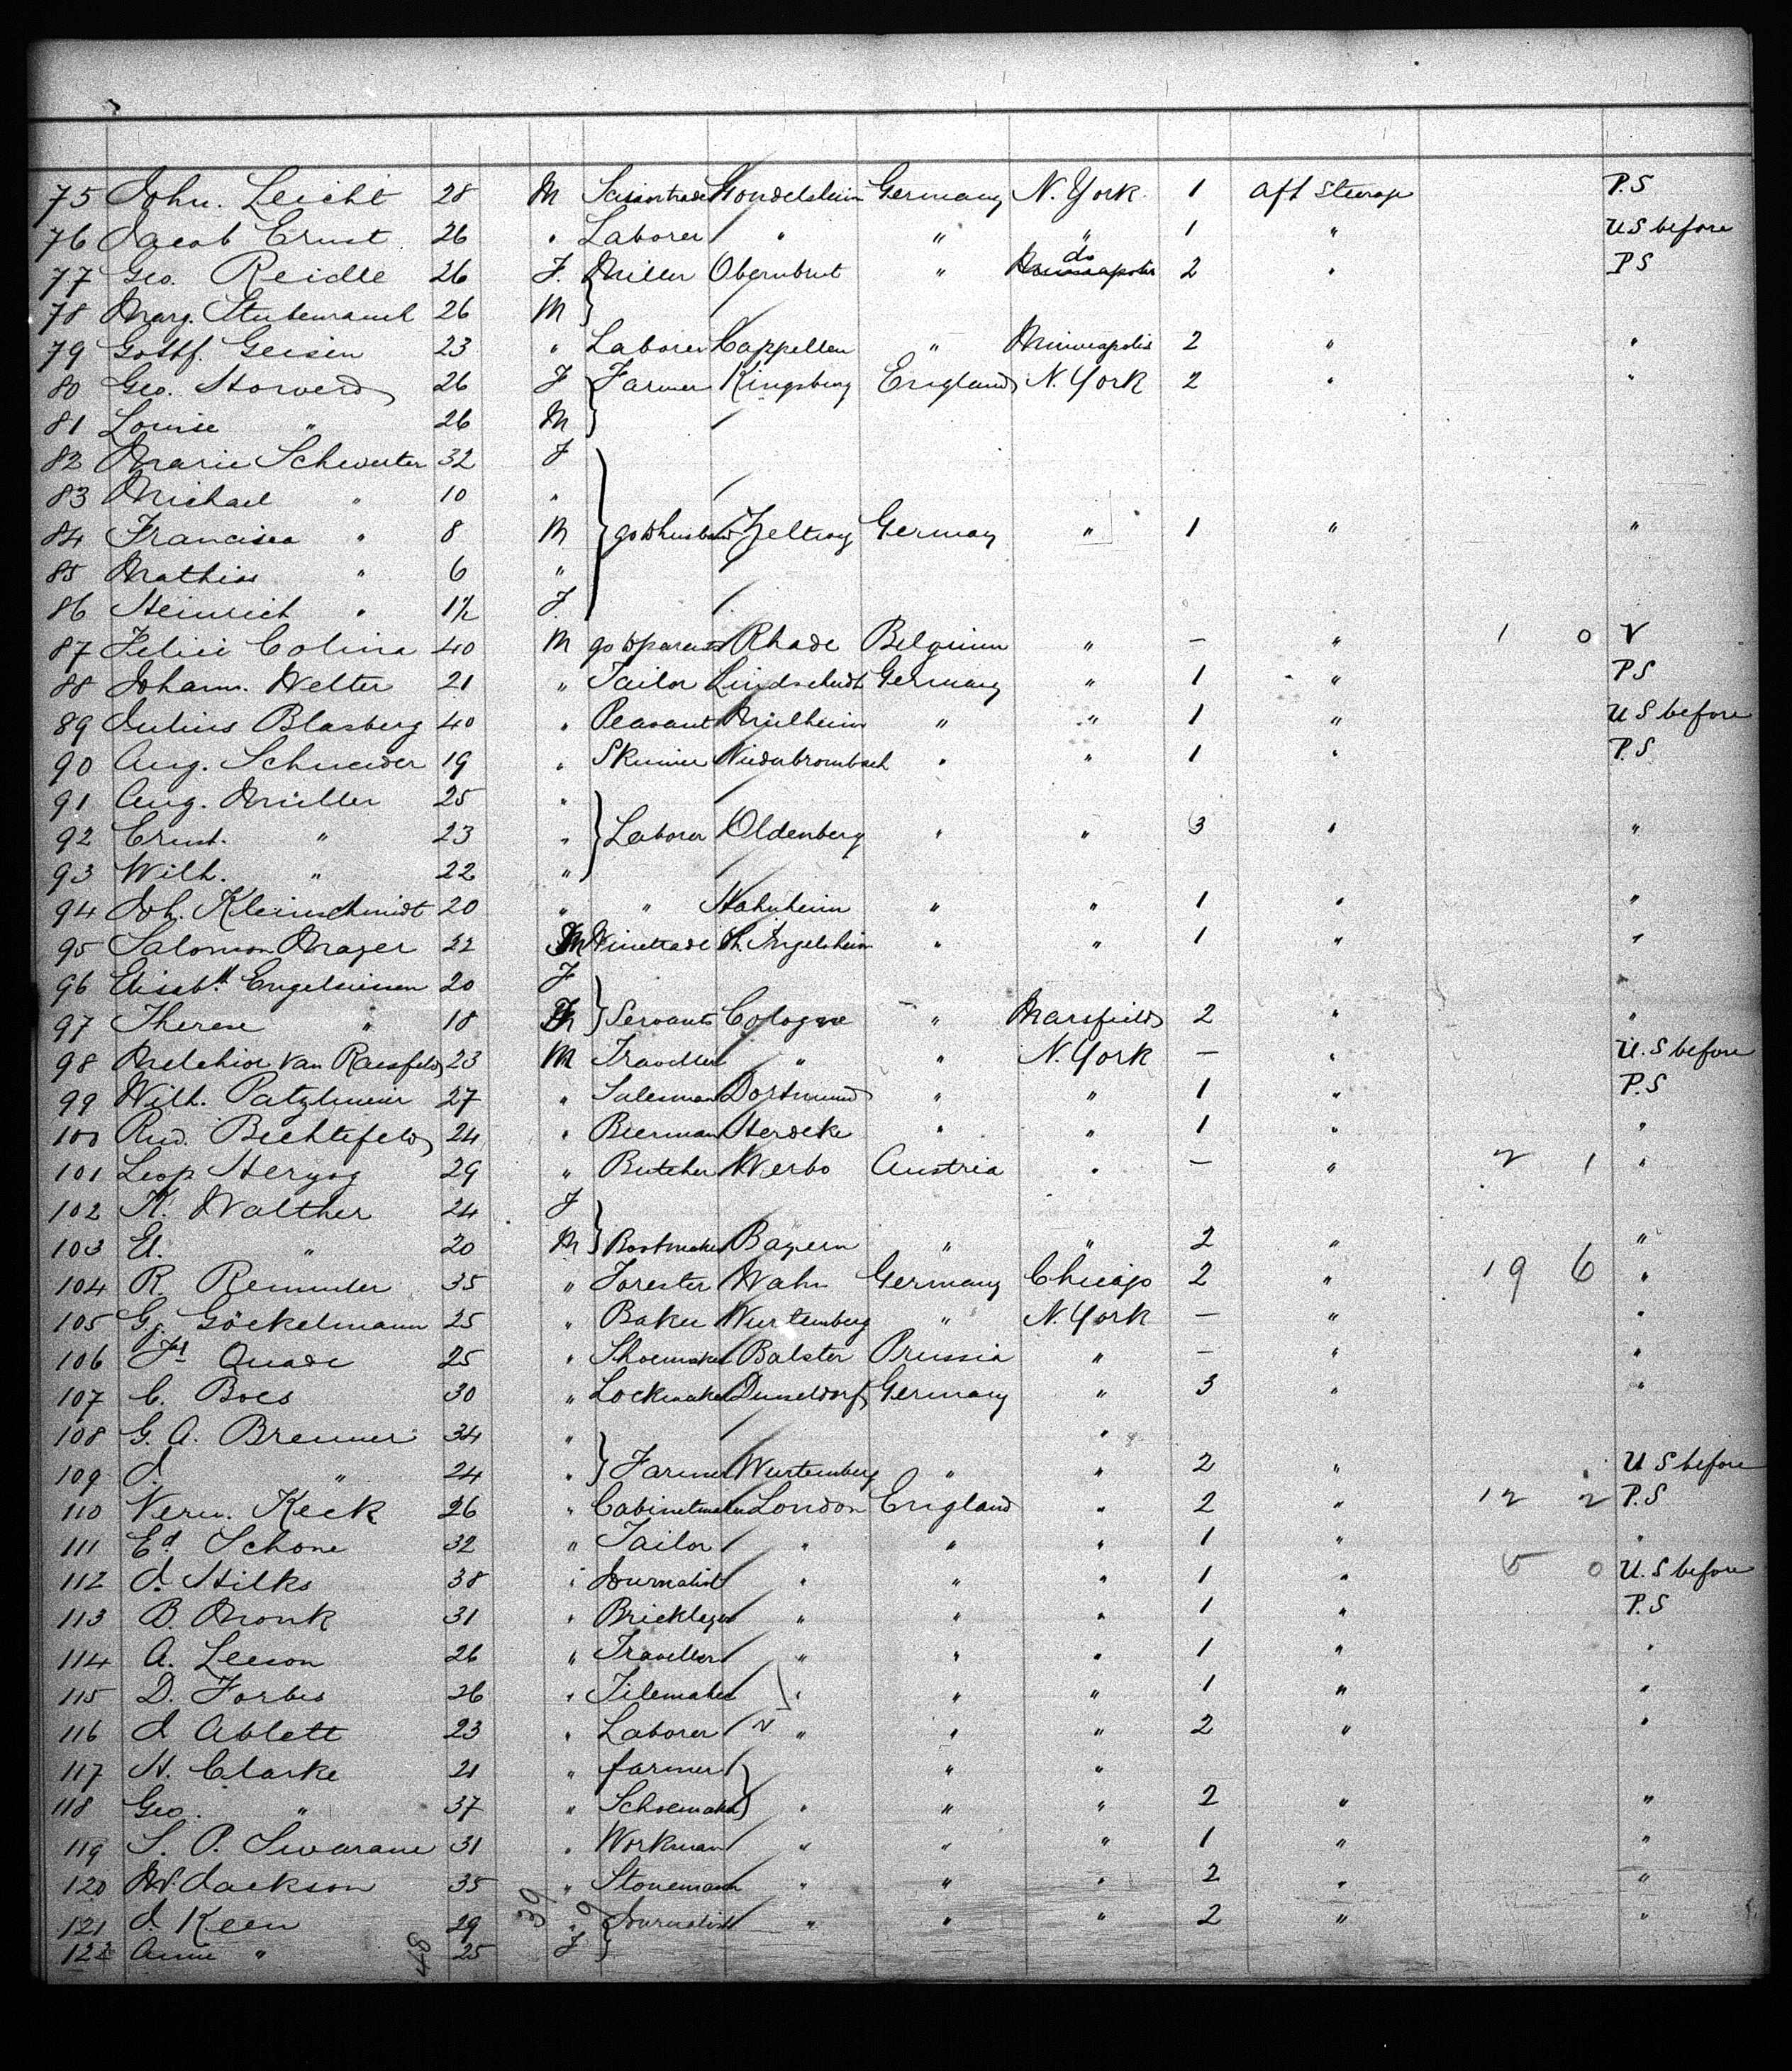 75 John. Leicht 28 M Gondelsheim Germany N. York. 1 Aft Steerage P.S
76 Jacob Ernst 26 " Laborer " " " 1 " U S before
77 Geo. Reidle 26 F. Miller " do Minneapolis 2 " P S
78 Marg. Stubenrauch 26 M
79 Gottf. Geisen 23 " Laborer Cappellen " Minneapolis 2 " "
80 Geo. 26 F Farmer Kingsburg England N. York 2 " "
81 Louise " 26 M
82 Marie Schwerter 32 F
83 Michael " 10 "
84 Francisca " 8 M go to husband Germany " 1 " "
85 Mathias " 6 "
86 Heinrich " 1½ F.
87 Colina 40 M go to parents Rhade Belgium " — " 1 0 V
88 Johann. Welter 21 " Tailor Germany " 1 " P S
89 Julius Blasberg 40 " Peasant Mülheim " " 1 " U S before
90 Aug. Schneider 19 " Skinner Niederbrombach " " 1 " P.S
91 Aug. Müller 25 "
92 Ernst. " 23 " Laborer Oldenberg " " 3 " "
93 Wilh. " 22 "
94 Joh. Kleinschmidt 20 " " Hahnheim " " 1 " "
95 Salomon Mayer 22 M Winetrade " " 1 " "
96 20 F "
97 Therese " 18 Servants Cologne " Marsfield 2 " "
98 Melchior Van Raesfeld 23 M Traveller " " N. York — " U. S before
99 Wilh. 27 " Salesman Dortmund " " 1 " P.S
100 Rud. 24 " Bierman Herdeke " " 1 " "
101 Leop Herzog 29 " Butcher Werbo Austria " — " 2 1 "
102 K. Walther 24 F
103 El. " 20 M Bootmaker Bayern " " 2 " "
104 R. 35 " Forester Wahn Germany Chicago 2 " 19 6 "
105 Göckelmann 25 " Baker Wurtemberg " N. York — " "
106 Quade 25 " Shoemaker Balster Prussia " — " "
107 C. Boes 30 " Lockmaker Dusseldorf Germany " 3 " "
108 G. A. Brenner 34 " "
109 J. " 24 " Farmer Wurtemberg " " 2 " U S before
110 Keck 26 " Cabinetmaker London England " 2 " 12 2 P.S
111 Ed Schone 32 " Tailor " " " 1 " "
112 J. Hilks 38 " Journalist " " " 1 " 5 0 U. S before
113 B. Monk 31 " Bricklayer " " " 1 " P.S
114 A. Leeson 26 " Traveller " " " 1 " "
115 D. Forbes 26 " Tilemaker " " " 1 " "
116 J Ablett 23 " Laborer " " " 2 " "
117 H. Clarke 21 " farmer " "
118 Geo. " 37 " Schoemaker " " " 2 " "
119 S. P. 31 " Workman " " " 1 " "
120 W. Jackson 35 " Stonemason " " " 2 " "
121 J. Keen 29 " Journalist " " " 2 " "
122 Annie " 25 F
48 39 9